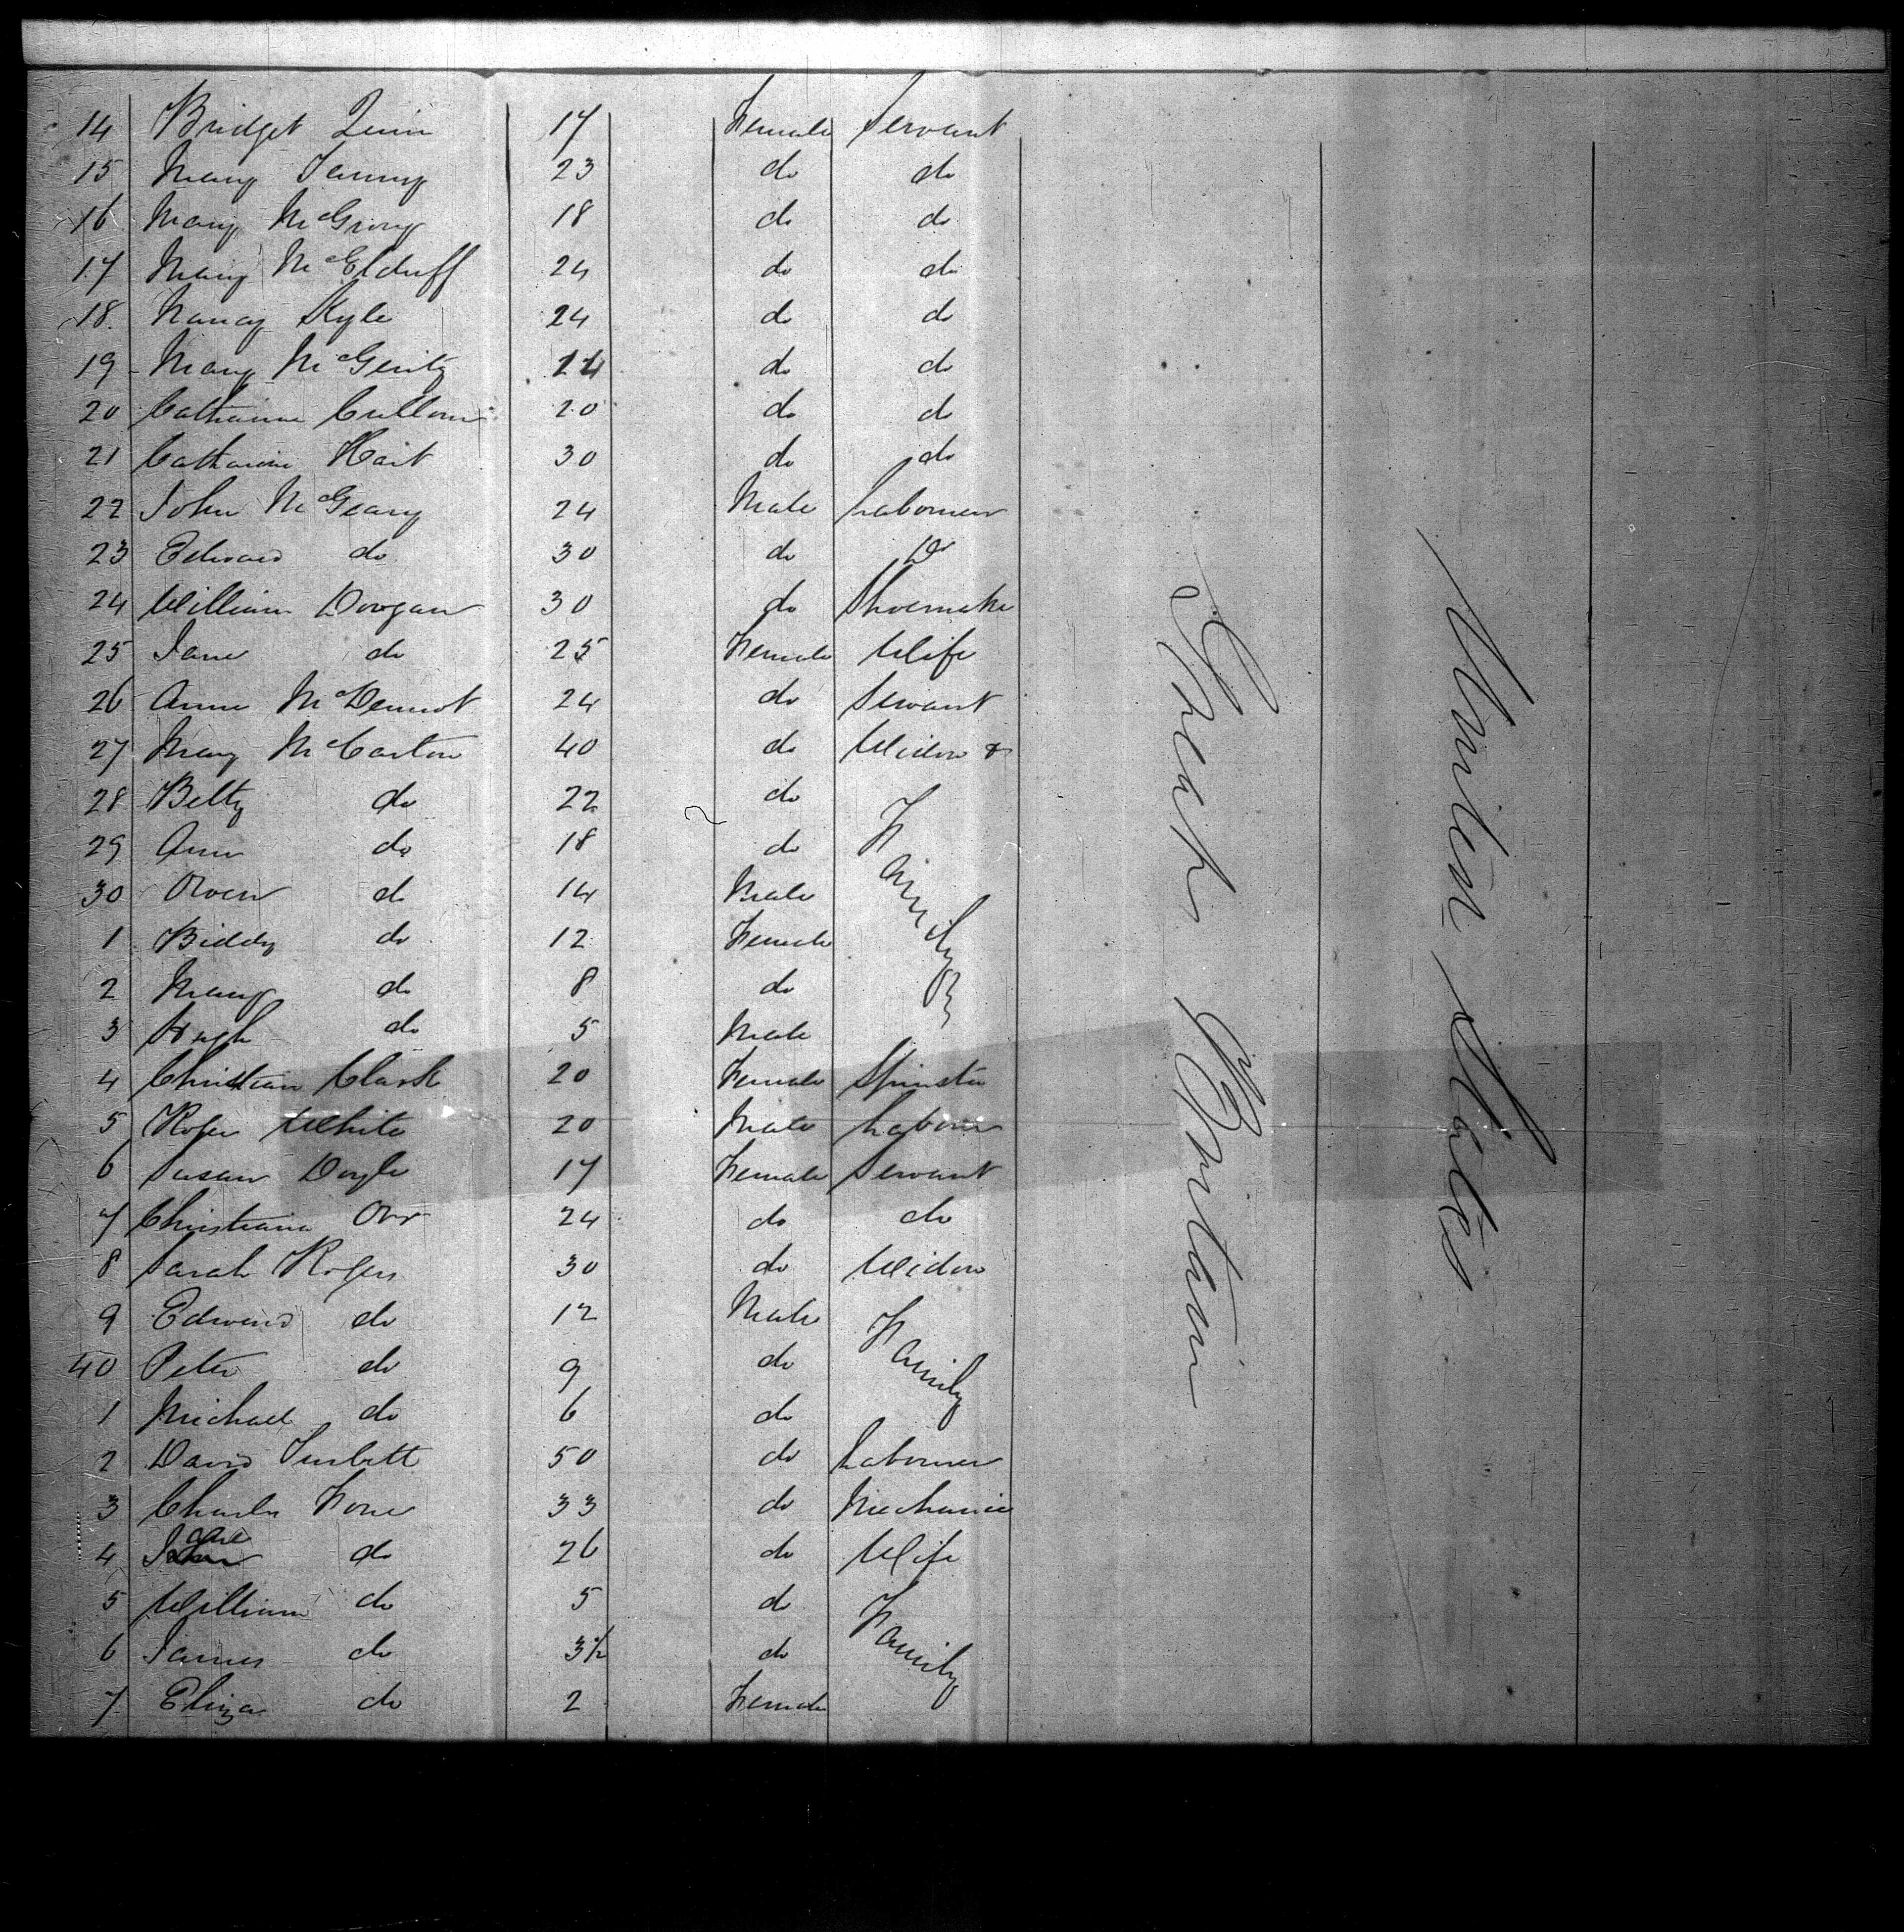 14 Bridget Quin 17 Female Servant
15 Mary 23 do do
16 Mary 18 do do
17 Mary McElduff 24 do do
18 Nancy Kyle 24 do do
19 Mary McGeirty 24 do do
20 Catharine Cullom 20 do do
21 Catharine Hart 30 do do
22 John McGeary 24 Male Labourer
23 Edward do 30 do Do
24 William Doogan 30 do Shoemake
25 Jane do 25 Female Wife
26 Anne McDermot 24 do Servant
27 Mary McCarton 40 do Widow &
28 Betty do 22 do Family
29 Ann do 18 do
30 Owen do 14 Male
1 Biddy do 12 Female
2 Mary do 8 do
3 Hugh do 5 Male
4 Christian Clark 20 Female Spinster
5 Roger White 20 Male Labourer
6 Susan Doyle 17 Female Servant
7 Christiana Orr 24 do do
8 Sarah Rogers 30 do Widow
9 Edward do 12 Male Family
40 Peter do 9 do
1 Michael do 6 do
2 David 50 do Labourer
3 Charles Fone 33 do Mechanic
4 Jane do 26 do Wife
5 William do 5 do Family
6 James do 3½ do
7 Eliza do 2 Female
Great Britain
United States